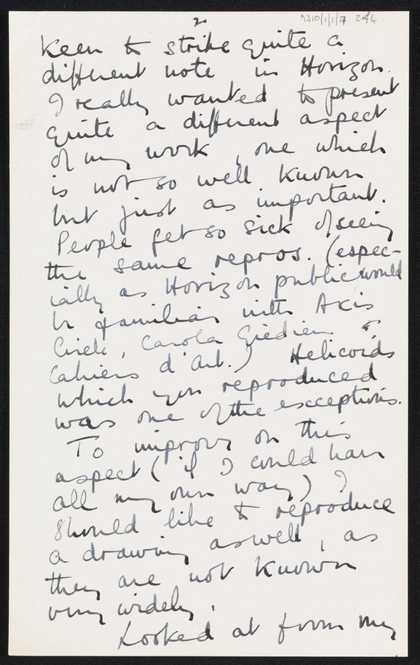 2
9310/1/1/7 2of4
keen to strike quite a
different note in Horizon.
I really wanted to present
quite a different aspect
of my work, one which
is not so well known
but just as important.
People get so sick of seeing
the same repros. (espec-
ially as Horizon public would
be familiar with Axis
Circle, Carola Giedion &
Cahiers d'Art.) Helicoids
which you reproduced
was one of the exceptions.
To improve on this
aspect (if I could have
all my own way) I
should like to reproduce
a drawing as well, as
they are not known
very widely.
Looked at from my